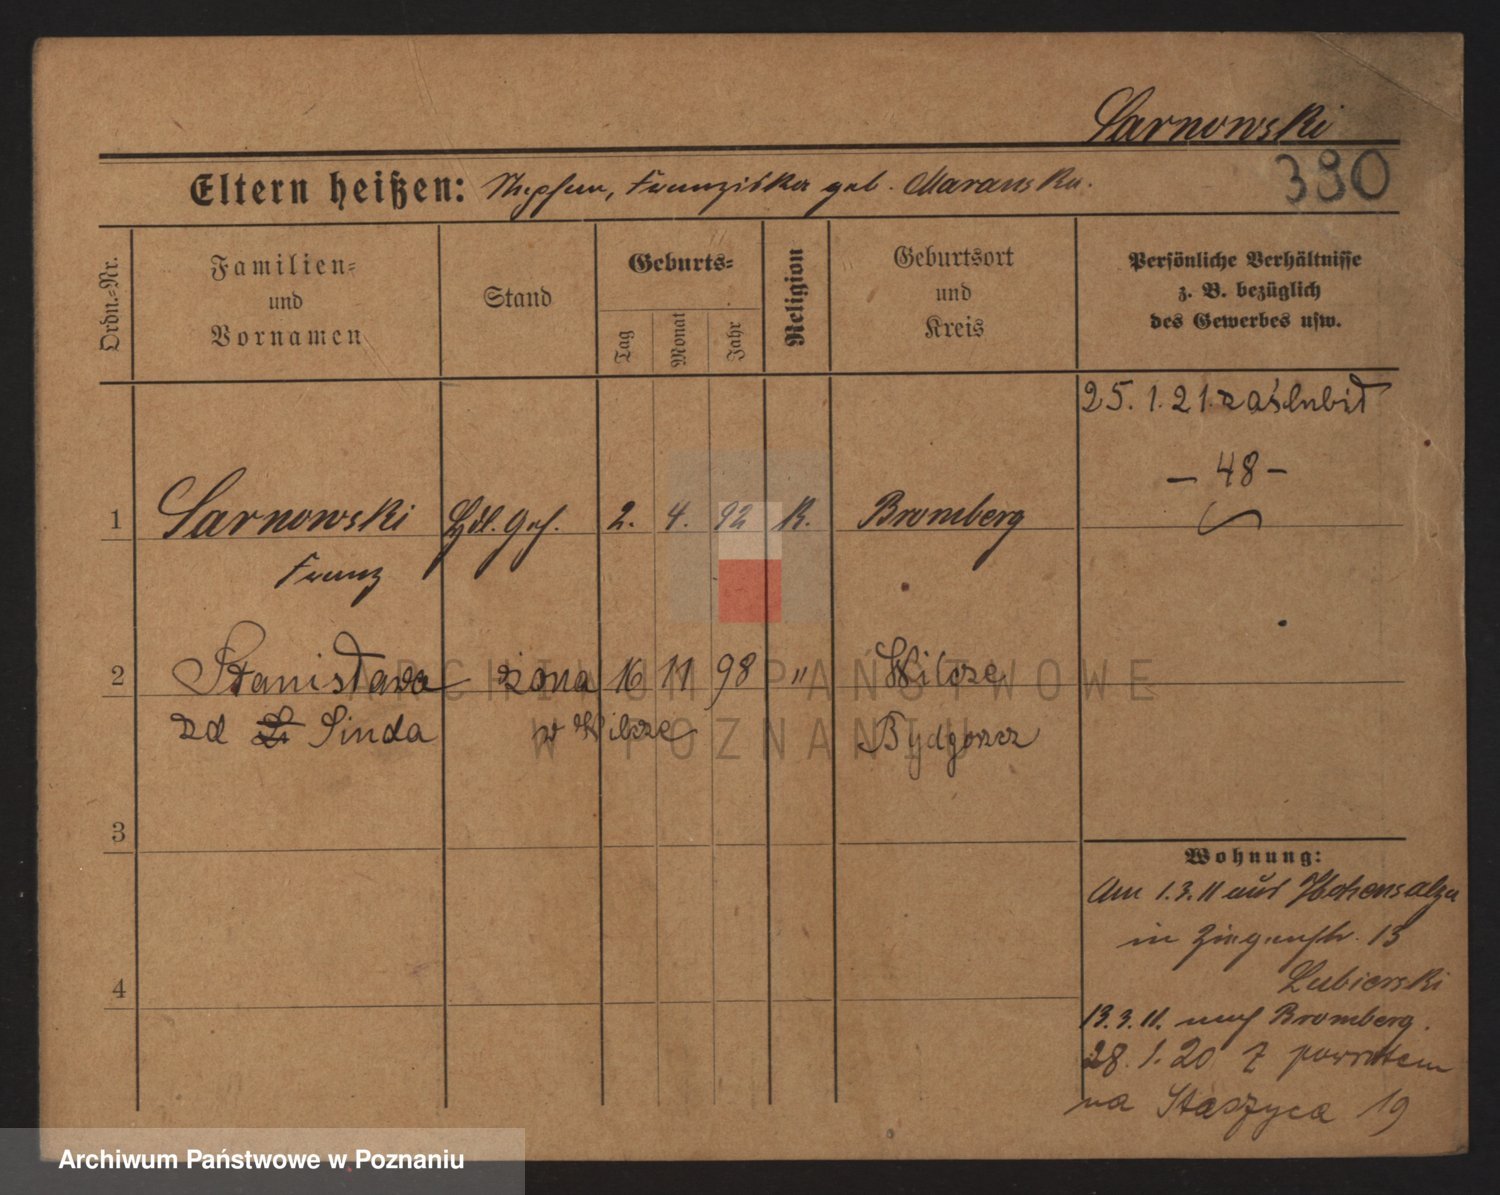 Sarnowski
Eltern heißen: Stephan, Franziska geb. Maranska.
380
Ordn.=Nr.
Familien=
und
Vornamen
Stand
Geburts=
Tag
Monat
Jahr
Religion
Geburtsort
und
Kreis
Persönliche Verhältnisse
z. B. bezüglich
des Gewerbes usw.
25. 1. 21. zaślubił
– 48 –
1 Sarnowski Hdl. Geh. 2. 4. 92 K. Bromberg
Franz
2 Stanisława żona 16 11 98 " Wilcze
zd Sinda w Wilcze Bydgoszcz
3
4
Wohnung:
Am 1.3.11 aus Hohensalza
in Ziegenstr. 13
Lubierski
13.3.11. nach Bromberg.
28. 1. 20 z powrotem
na Staszyca 19
ARCHIWUM PAŃSTWOWE
W POZNANIU
Archiwum Państwowe w Poznaniu